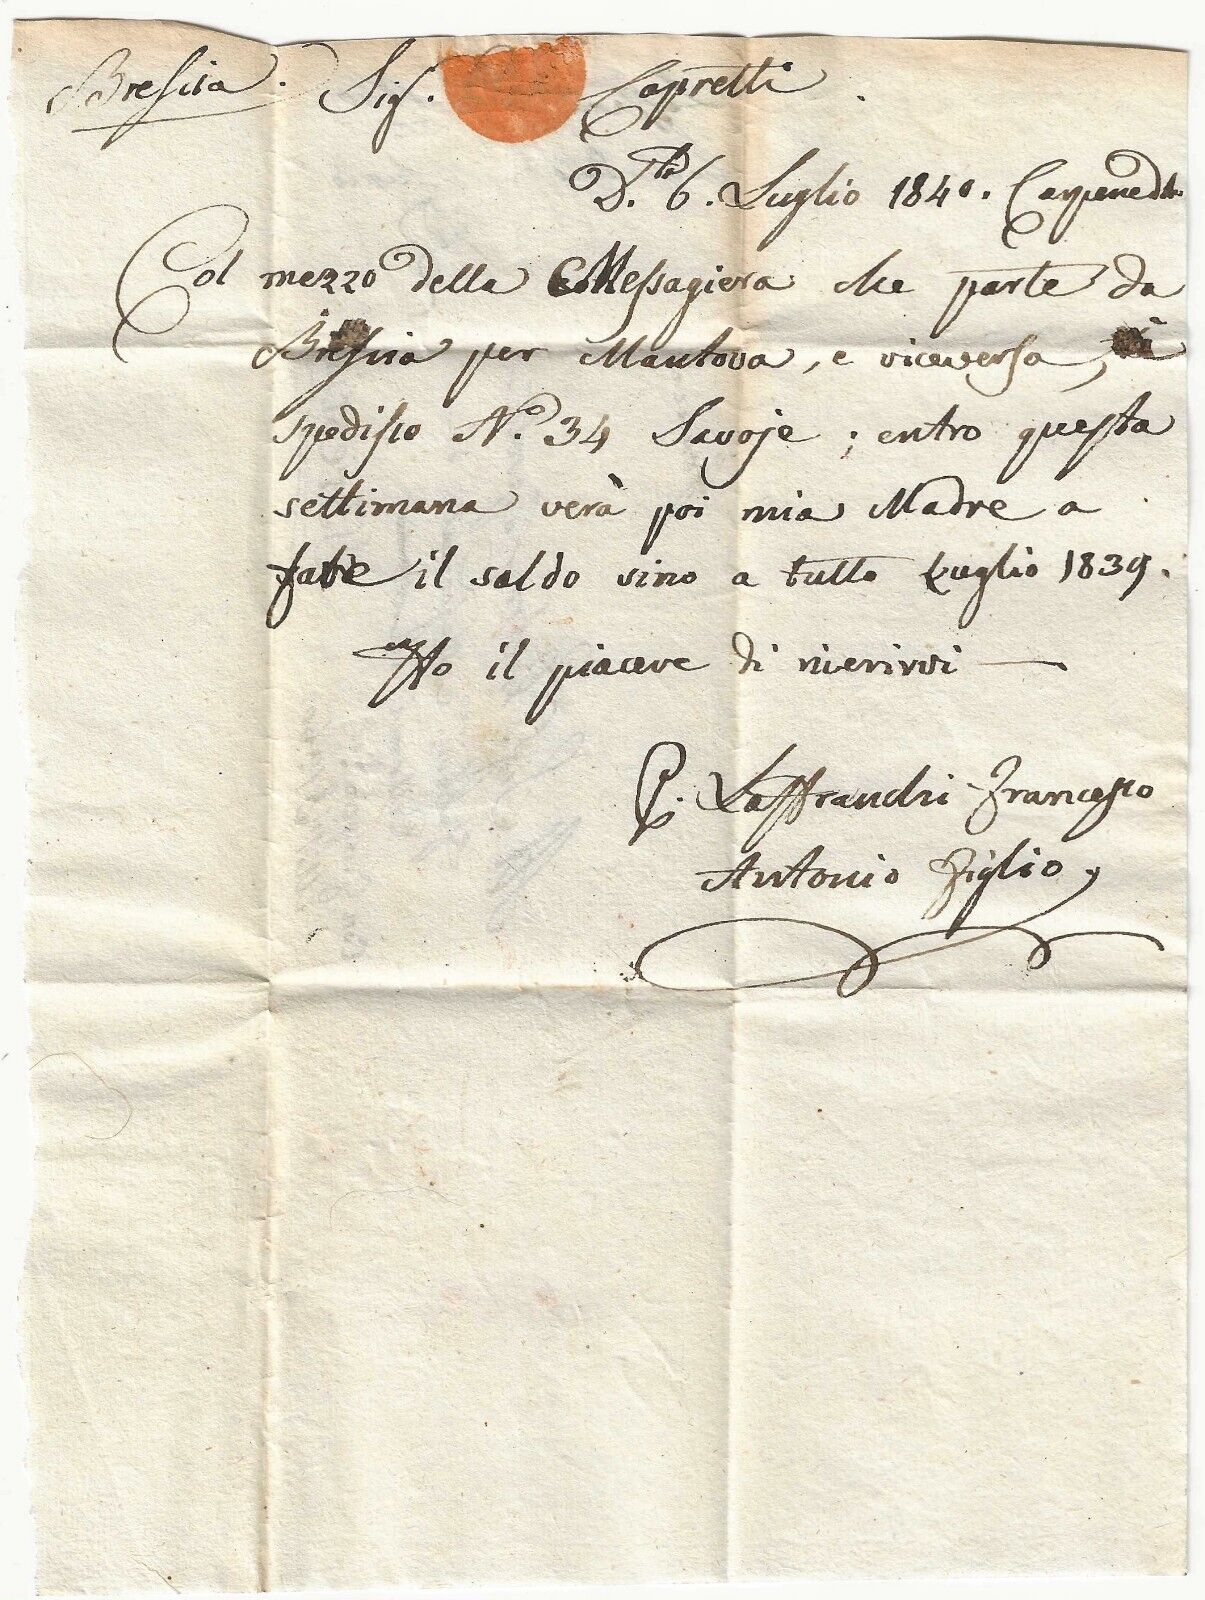 Brescia. Sig. Capretti.
D.tto 6. Luglio 1840. Carpenedlo
Col mezzo della Messagiera che parte da
Brescia per Mantova, e viceversa,
spedisco N.o 34 Savoje; entro questa
settimana verà poi mia Madre a
fare il saldo sino a tutto Luglio 1839.
Ho il piacere di riverirvi —
P. Laffranchi Francesco
Antonio Figlio